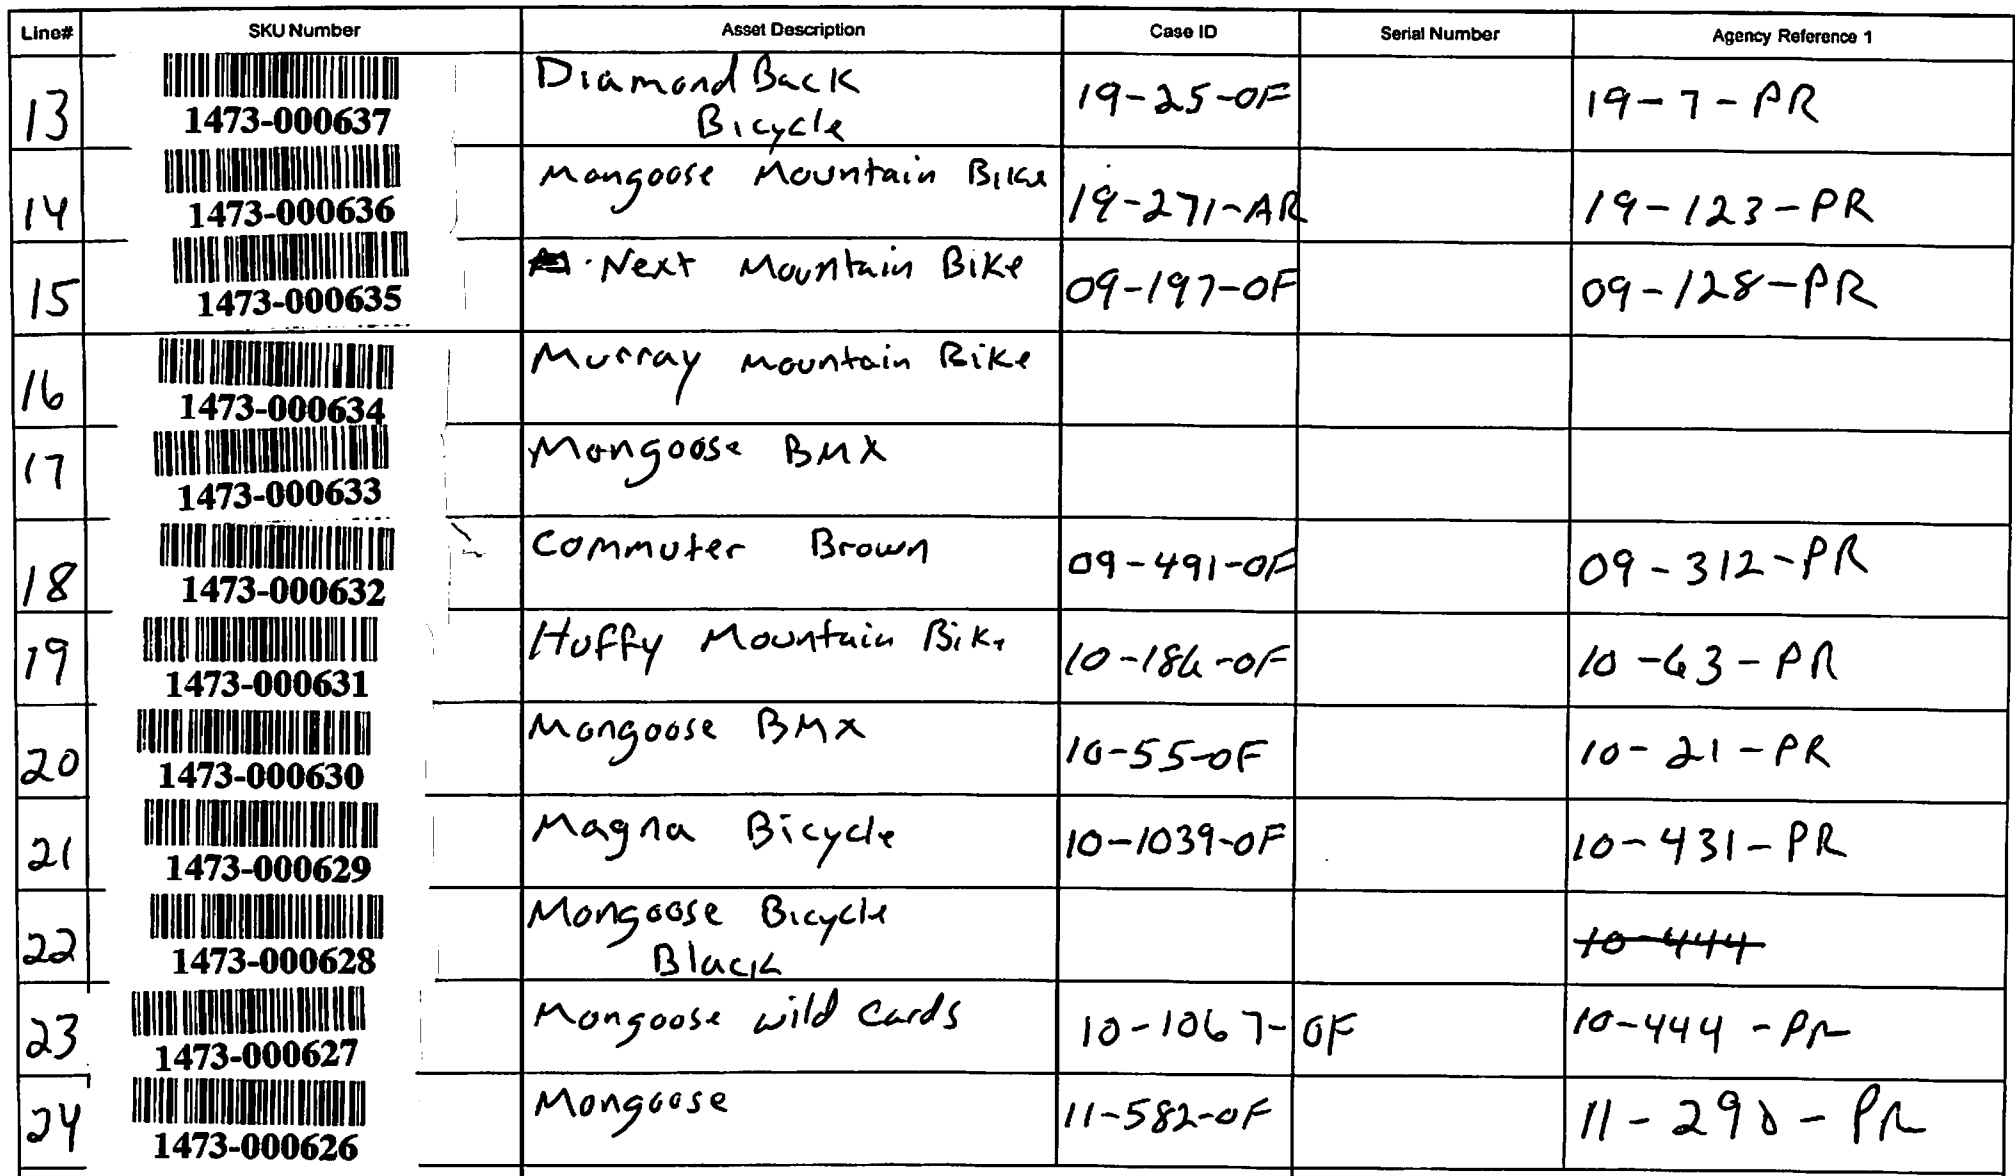 Line# SKU Number Asset Description Case ID Serial Number Agency Reference 1
13 1473-000637 Diamond Back Bicycle 19-25-OF 19-7-PR
14 1473-000636 Mongoose Mountain Bike 19-271-AR 19-123-PR
15 1473-000635 Next Mountain Bike 09-197-OF 09-128-PR
16 1473-000634 Murray Mountain Bike
17 1473-000633 Mongoose BMX
18 1473-000632 Commuter Brown 09-491-OF 09-312-PR
19 1473-000631 Huffy Mountain Bike 10-186-OF 10-63-PR
20 1473-000630 Mongoose BMX 10-55-OF 10-21-PR
21 1473-000629 Magna Bicycle 10-1039-OF 10-431-PR
22 1473-000628 Mongoose Bicycle Black 10-444
23 1473-000627 Mongoose wild cards 10-1067-OF 10-444-PR
24 1473-000626 Mongoose 11-582-OF 11-290-PR